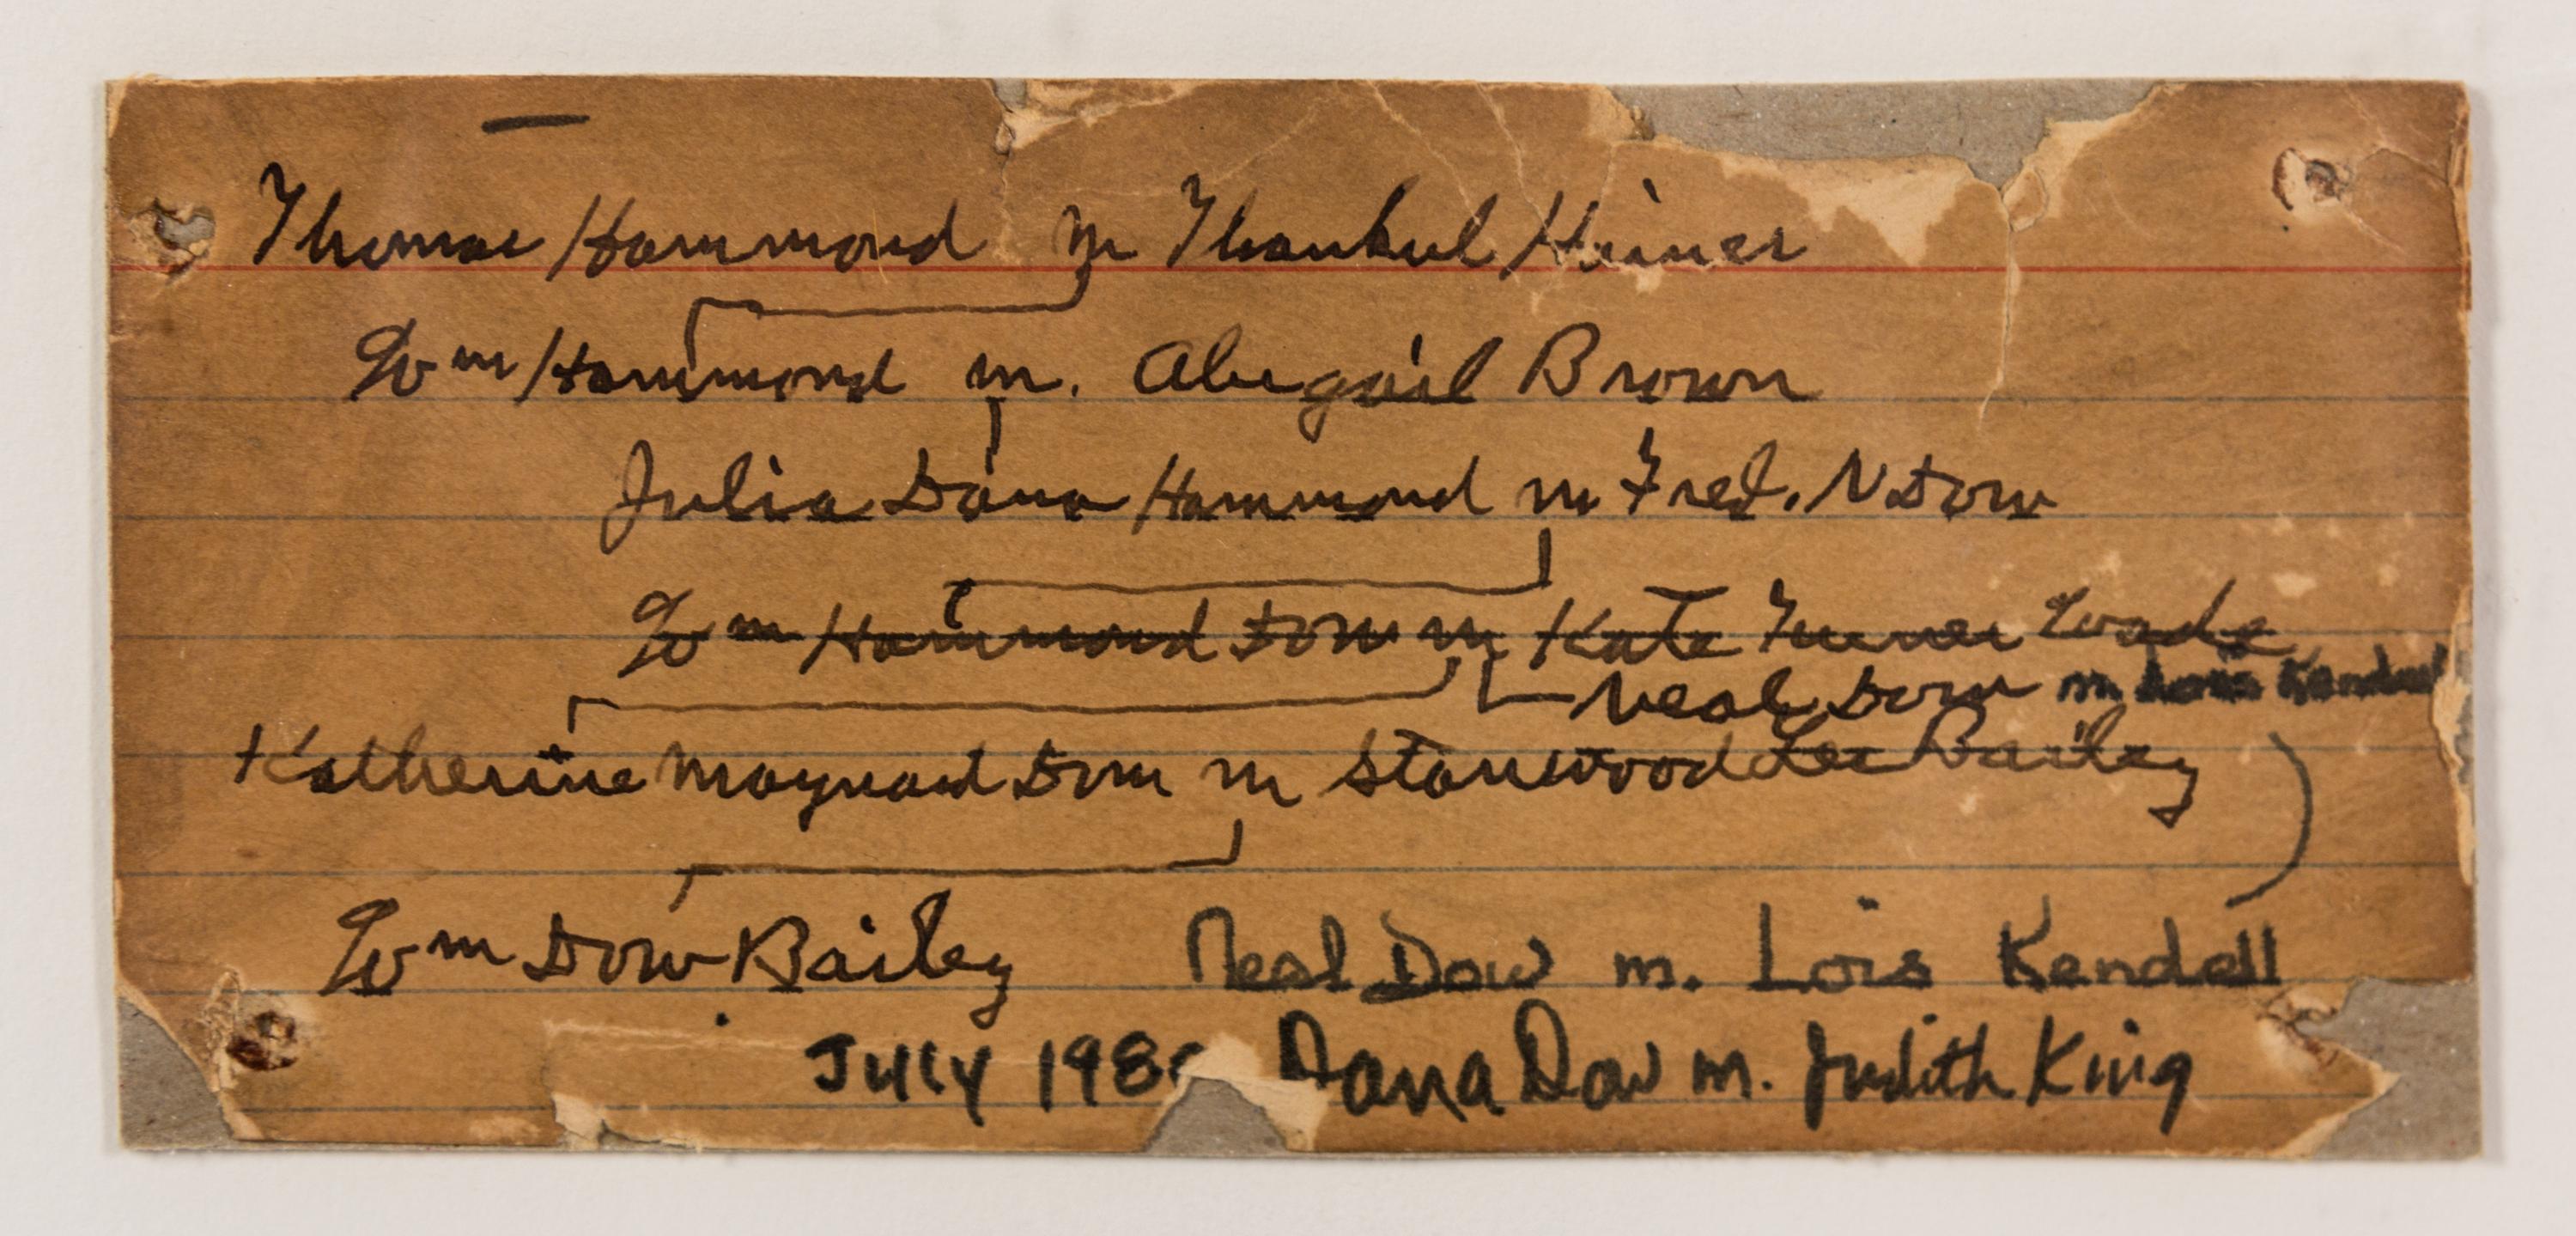 Thomas Hammond m Thankul Haines
Wm Hammond m. Abigail Brown
Julia Dana Hammond m Fred. N Dow
Wm Hammond Dow m Kate Turner Wade
Neal Dow m Lois Kendall
Katherine Maynard Dow m Stanwood Lee Bailey
Wm Dow Bailey Neal Dow m. Lois Kendall
July 198 Dana Dow m. Judith King